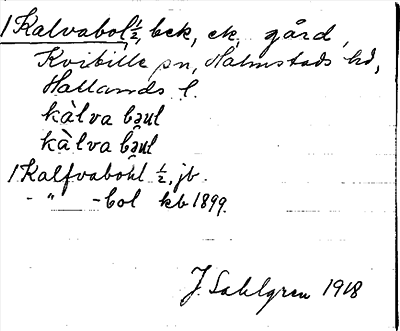 1 Kalvabol ½, bek, ek, gård,
Kvibille sn, Halmstads hd,
Hallands l.
kàlva bəul
kàlva bəul
1 Kalfvabohl ½, jb.
- " - -bol kb 1899.
J. Sahlgren 1918